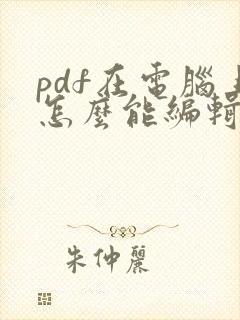 pdf在電腦上
怎麼能編輯
朱仲麗